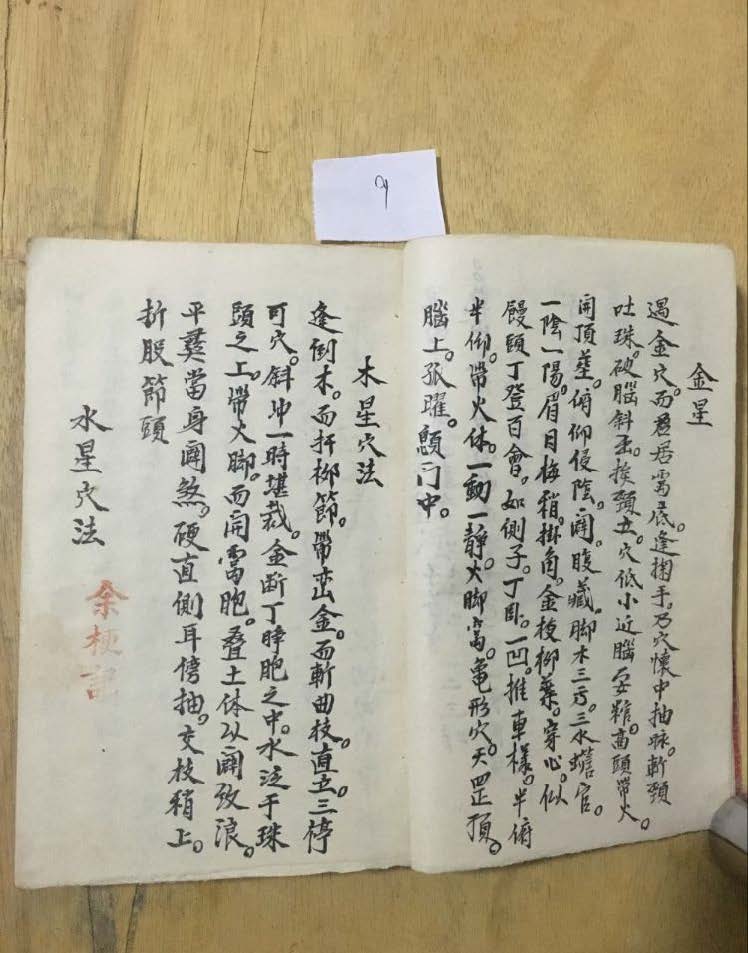 金星
遇金穴。而居窩底。逢掬手。乃穴懷中抽脉。斬頸
吐珠。破腦斜。挨頸立。穴低小近腦安。高頭帶火。
開頂葬。俯仰侵陰。開腹藏。脚木三。三水蟾官。
一陰一陽。眉目梅稍。掛角。金枝柳葉。穿心。似
饅頭丁登百會。如側子。丁卧。一凹。推車樣。半俯
半仰。帶火体。一動一靜。火脚窩。龜形穴。天罡頂。
腦上。孤曜。顖门中。
木星穴法
逢倒木。而扦柳節。帶金。而斬曲枝。直立。三停
可穴。斜一時堪裁。金断丁胞之中。水泛于珠
頭之上。帶火脚。而開窩胞。叠土体以開浪。
平當身開煞。硬直側耳傍抽。交枝稍上。
折股節頭
水星穴法
余梗記
9